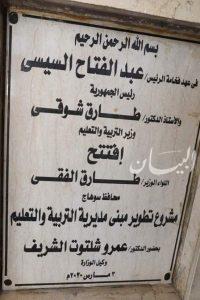 بسم الله الرحمن الرحيم
فى عهد فخامة الرئيس/ عبد الفتاح السيسى
رئيس الجمهورية
والأستاذ الدكتور/ طارق شوقى
وزير التربية والتعليم
إفتتح
اللواء الوزير/ طارق الفقى
محافظ سوهاج
مشروع تطوير مبنى مديرية التربية والتعليم
بحضور الدكتور/ عمرو شلتوت الشريف
وكيل الوزارة
٣ مارس ٢٠٢٠م
البيان